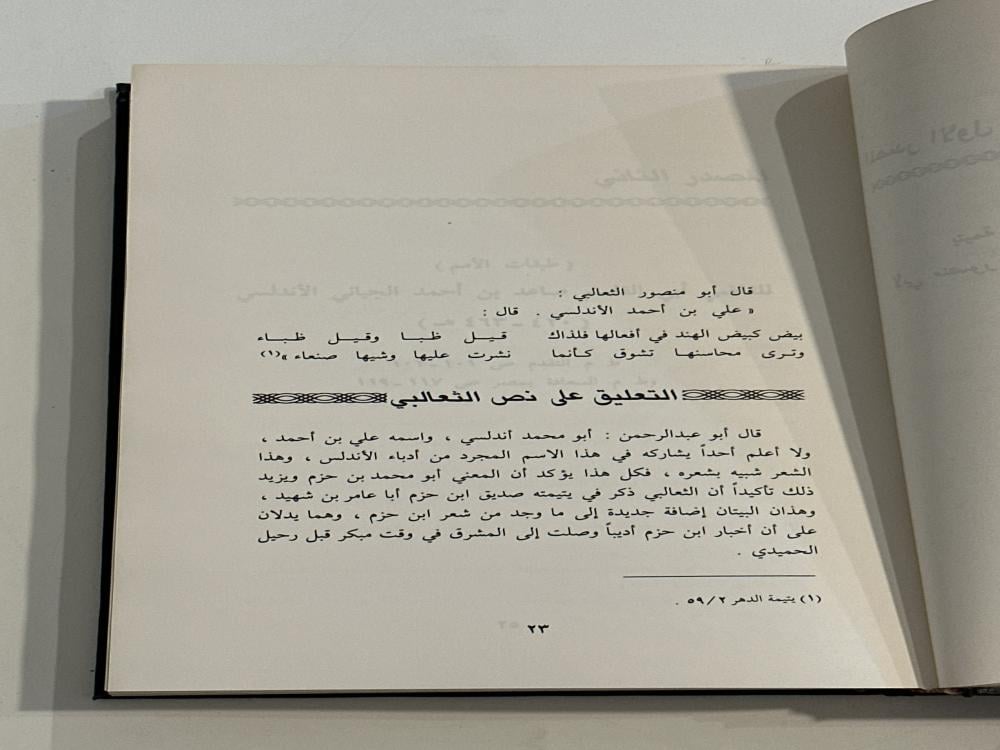 قال أبو منصور الثعالبي :
« علي بن أحمد الأندلسي . قال :
بيض كبيض الهند في أفعالها فلذاك قيـل ظبـا وقيـل ظبـاء
وتـرى محاسنهـا تشوق كـأنمـا نشرت عليها وشيها صنعاء »(١)
التعليق على نص الثعالبي
قال أبو عبدالرحمن : أبو محمد أندلسي ، واسمه علي بن أحمد ،
ولا أعلم أحداً يشاركه في هذا الاسم المجرد من أدباء الأندلس ، وهذا
الشعر شبيه بشعره ، فكل هذا يؤكد أن المعني أبو محمد بن حزم ويزيد
ذلك تأكيداً أن الثعالبي ذكر في يتيمته صديق ابن حزم أبا عامر بن شهيد ،
وهذان البيتان إضافة جديدة إلى ما وجد من شعر ابن حزم ، وهما يدلان
على أن أخبار ابن حزم أديباً وصلت إلى المشرق في وقت مبكر قبل رحيل
الحميدي .
(١) يتيمة الدهر ٥٩/٢ .
٢٣